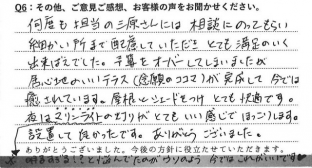 Q6：その他、ご意見ご感想、お客様の声をお聞かせください。
何度も担当の三原さんには 相談にのってもらい
細かい所まで配慮していただき とても満足のいく
出来ばえでした。予算をオーバーしてしまいましたが
居心地のいいテラス（念願のココマ）が完成して 今では
癒されています。屋根にシェードをつけ とても快適です。
夜はマリンライトの灯りがとてもいい感じで ほっこりします。
設置して良かったです。ありがとうございました。
ありがとうございました。今後の方針に役立たせていただきます。
明るすぎる！と悩んでたのがウソのよう 今ではこれがいいです